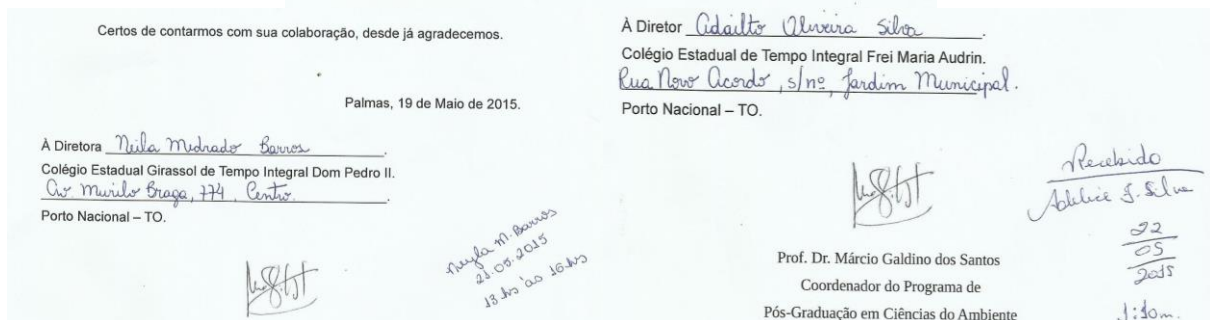 Certos de contarmos com sua colaboração, desde já agradecemos.
Palmas, 19 de Maio de 2015.
À Diretora Neila Medrado Barros.
Colégio Estadual Girassol de Tempo Integral Dom Pedro II.
Av. Murilo Braga, 774, Centro.
Porto Nacional – TO.
Neyla M. Barros
21.05.2015
13 hs às 16 hs
À Diretor Adailto Oliveira Silva.
Colégio Estadual de Tempo Integral Frei Maria Audrin.
Rua Novo Acordo, s/nº, Jardim Municipal.
Porto Nacional – TO.
Recebido
Silva
22
05
2015
Prof. Dr. Márcio Galdino dos Santos
Coordenador do Programa de
Pós-Graduação em Ciências do Ambiente